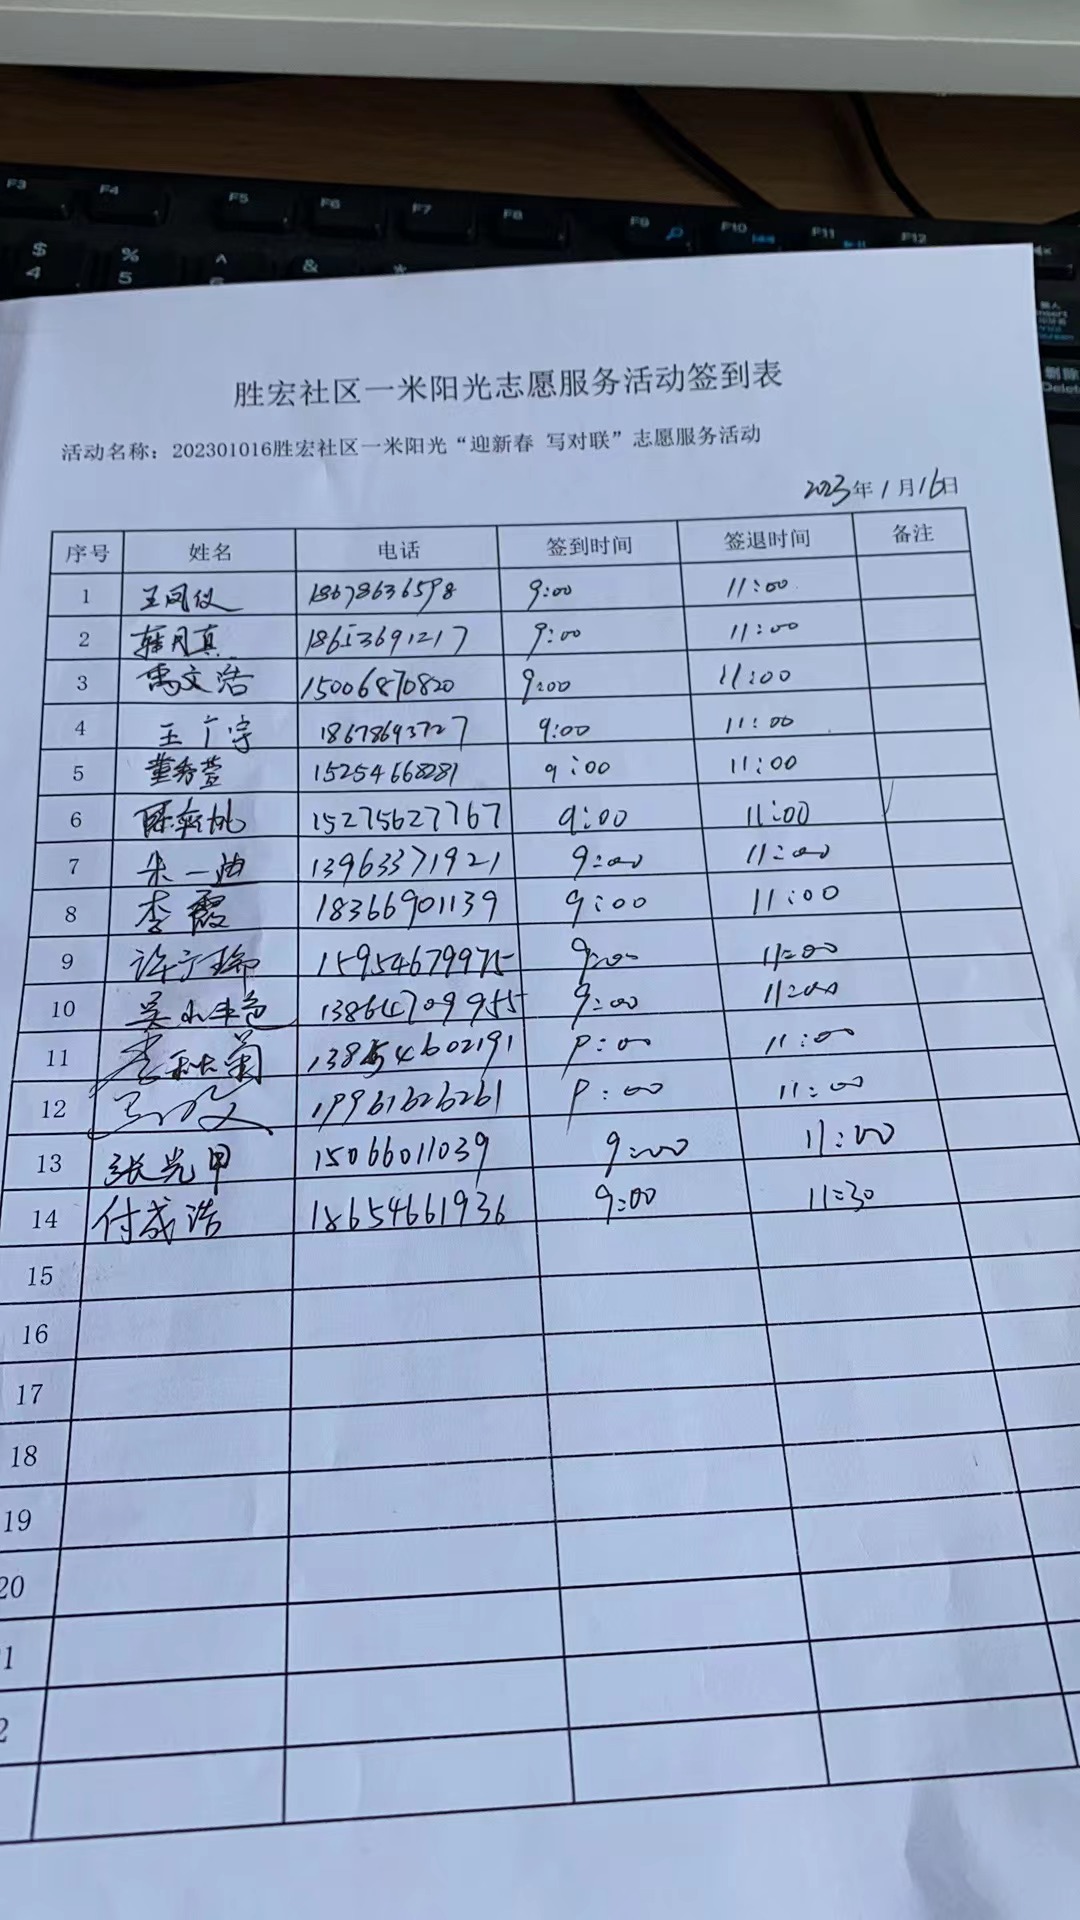 F3 F4 F5 F6 F7 F8 F9 F10 F11 F12
$ % ^ & *
4 5 6
Insert
删除
Delete
胜宏社区一米阳光志愿服务活动签到表
活动名称：202301016胜宏社区一米阳光“迎新春 写对联”志愿服务活动
2023年1月16日
序号 姓名 电话 签到时间 签退时间 备注
1 王凤仪 18678636598 9:00 11:00
2 韩月真 18653691217 9:00 11:00
3 禹文浩 15006870820 9:00 11:00
4 王广宇 18678693727 9:00 11:00
5 董秀萱 15254668281 9:00 11:00
6 15275627767 9:00 11:00
7 朱一迪 13963371921 9:00 11:00
8 李霞 18366901139 9:00 11:00
9 许广瑞 15954679975 9:00 11:00
10 13864709955 9:00 11:00
11 李秋菊 13854602191 9:00 11:00
12 19961626261 9:00 11:00
13 张光甲 15066011039 9:00 11:00
14 付成浩 18654661936 9:00 11:30
15
16
17
18
19
20
1
2